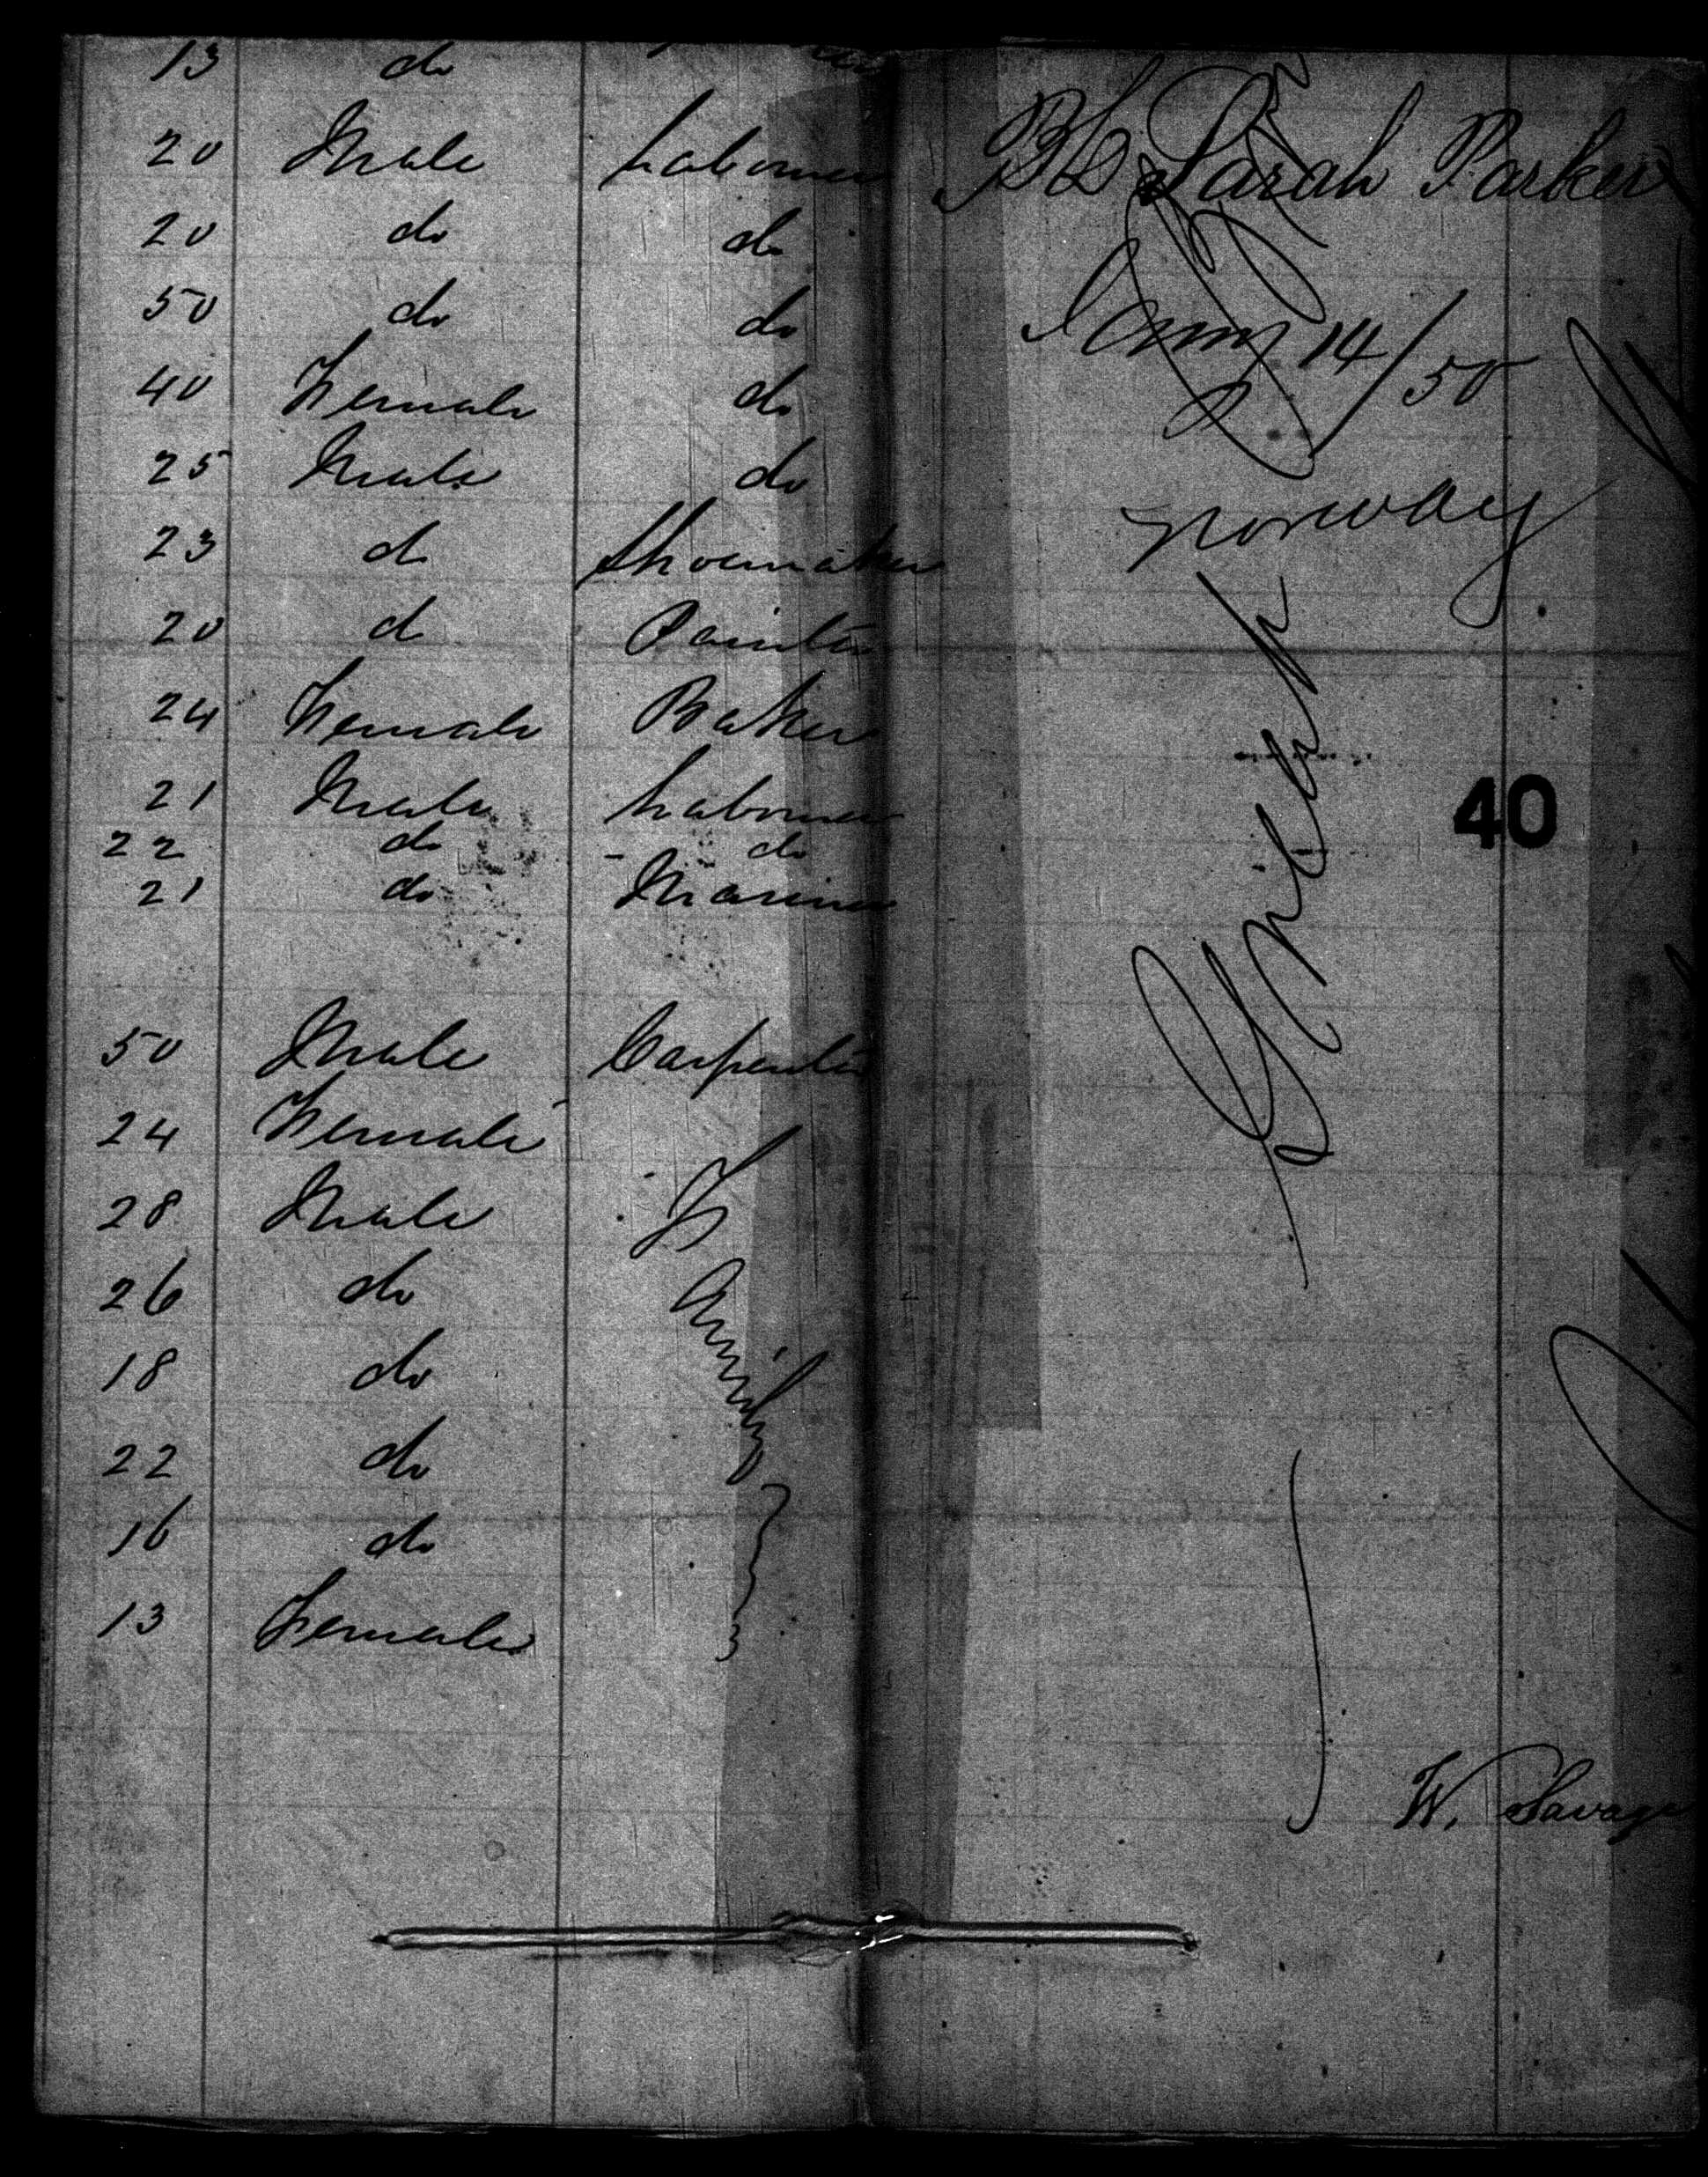 13 do
20 Male Labourer
20 do do
50 do do
40 Female do
25 Male do
23 do Shoemaker
20 do Painter
24 Female Baker
21 Male Labourer
22 do do
21 do Mariner
50 Male Carpenter
24 Female
28 Male
26 do
18 do
22 do
16 do
13 Female
Family
Sarah Parker
14/50
Norway
40
W. Savage